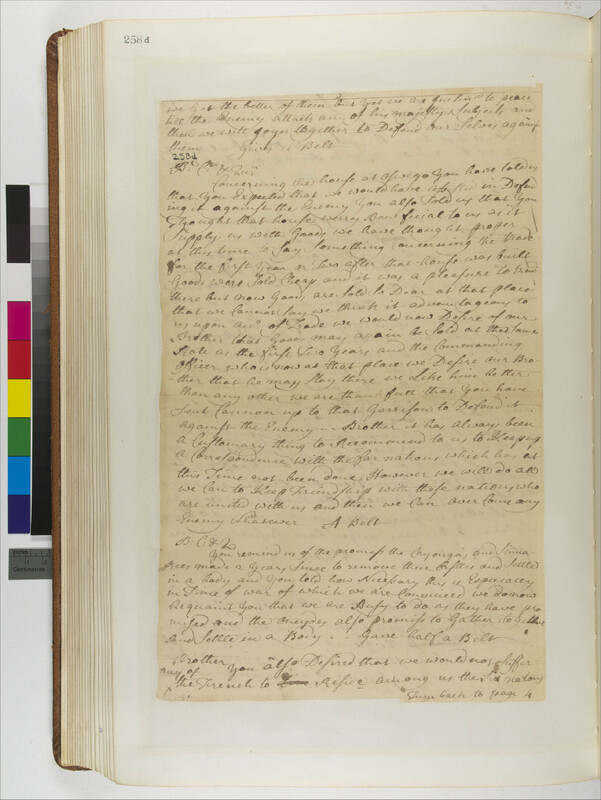 258d
we Got the better of them but yet we are Inclin'd to peace
till the Enemy attack any of his majestys Subjects and
then we will Joyn together to Defend our Selves against
them Gives a Belt
258d
Concerning the house at oswego You have told us
that You Expected that we would have assisted in Defend
ing it against the Enemy You also Told us that You
thought that house were Benificial to us as it
Supply us with Goods we have thought proper
at this time to Say Something Concerning the trade
for the first Year or Two after that house was built
Goods were Sold Cheap and it was a pleasure to trade
there but now Goods are Sold So Dear at that place
that we Cannot Say we think it advantageous to
us upon acc.t of Trade we would now Desire of our
Brother that Goods may again be Sold at the Same
Rate as the first Two Years and the Commanding
officer who is now at that place we Desire our Bro-
ther that he may Stay there we Like him better
than any other we are thankfull that You have
Sent Cannon up to that Garrison to Defend it
against the Enemy -- Brother it has always been
a Customary thing to Recommend to us to Keep up
a Correspondence with the far nations which has at
this Time not been done However we will do all
we can to Keep Friendship with those nations who
are united with us and then we Can over Come any
Enemy Whatever A Belt
B: C: & Q
You remind us of the promise the Cayonga's and Sinna-
kees made a Yeary Since to remove their Castles and Settle
in a body and You told how Necessary this is Especially
in Time of war of which we are Convinced we do now
Acquaint You that we are Busy to do as they have pro
mised and the oneydes also promise to Gather together
And Settle in a Body - Gave half a Belt
Brother You also Desired that we would not Suffer
any of the French to Reside among us the Six nations
Turn back to page 4